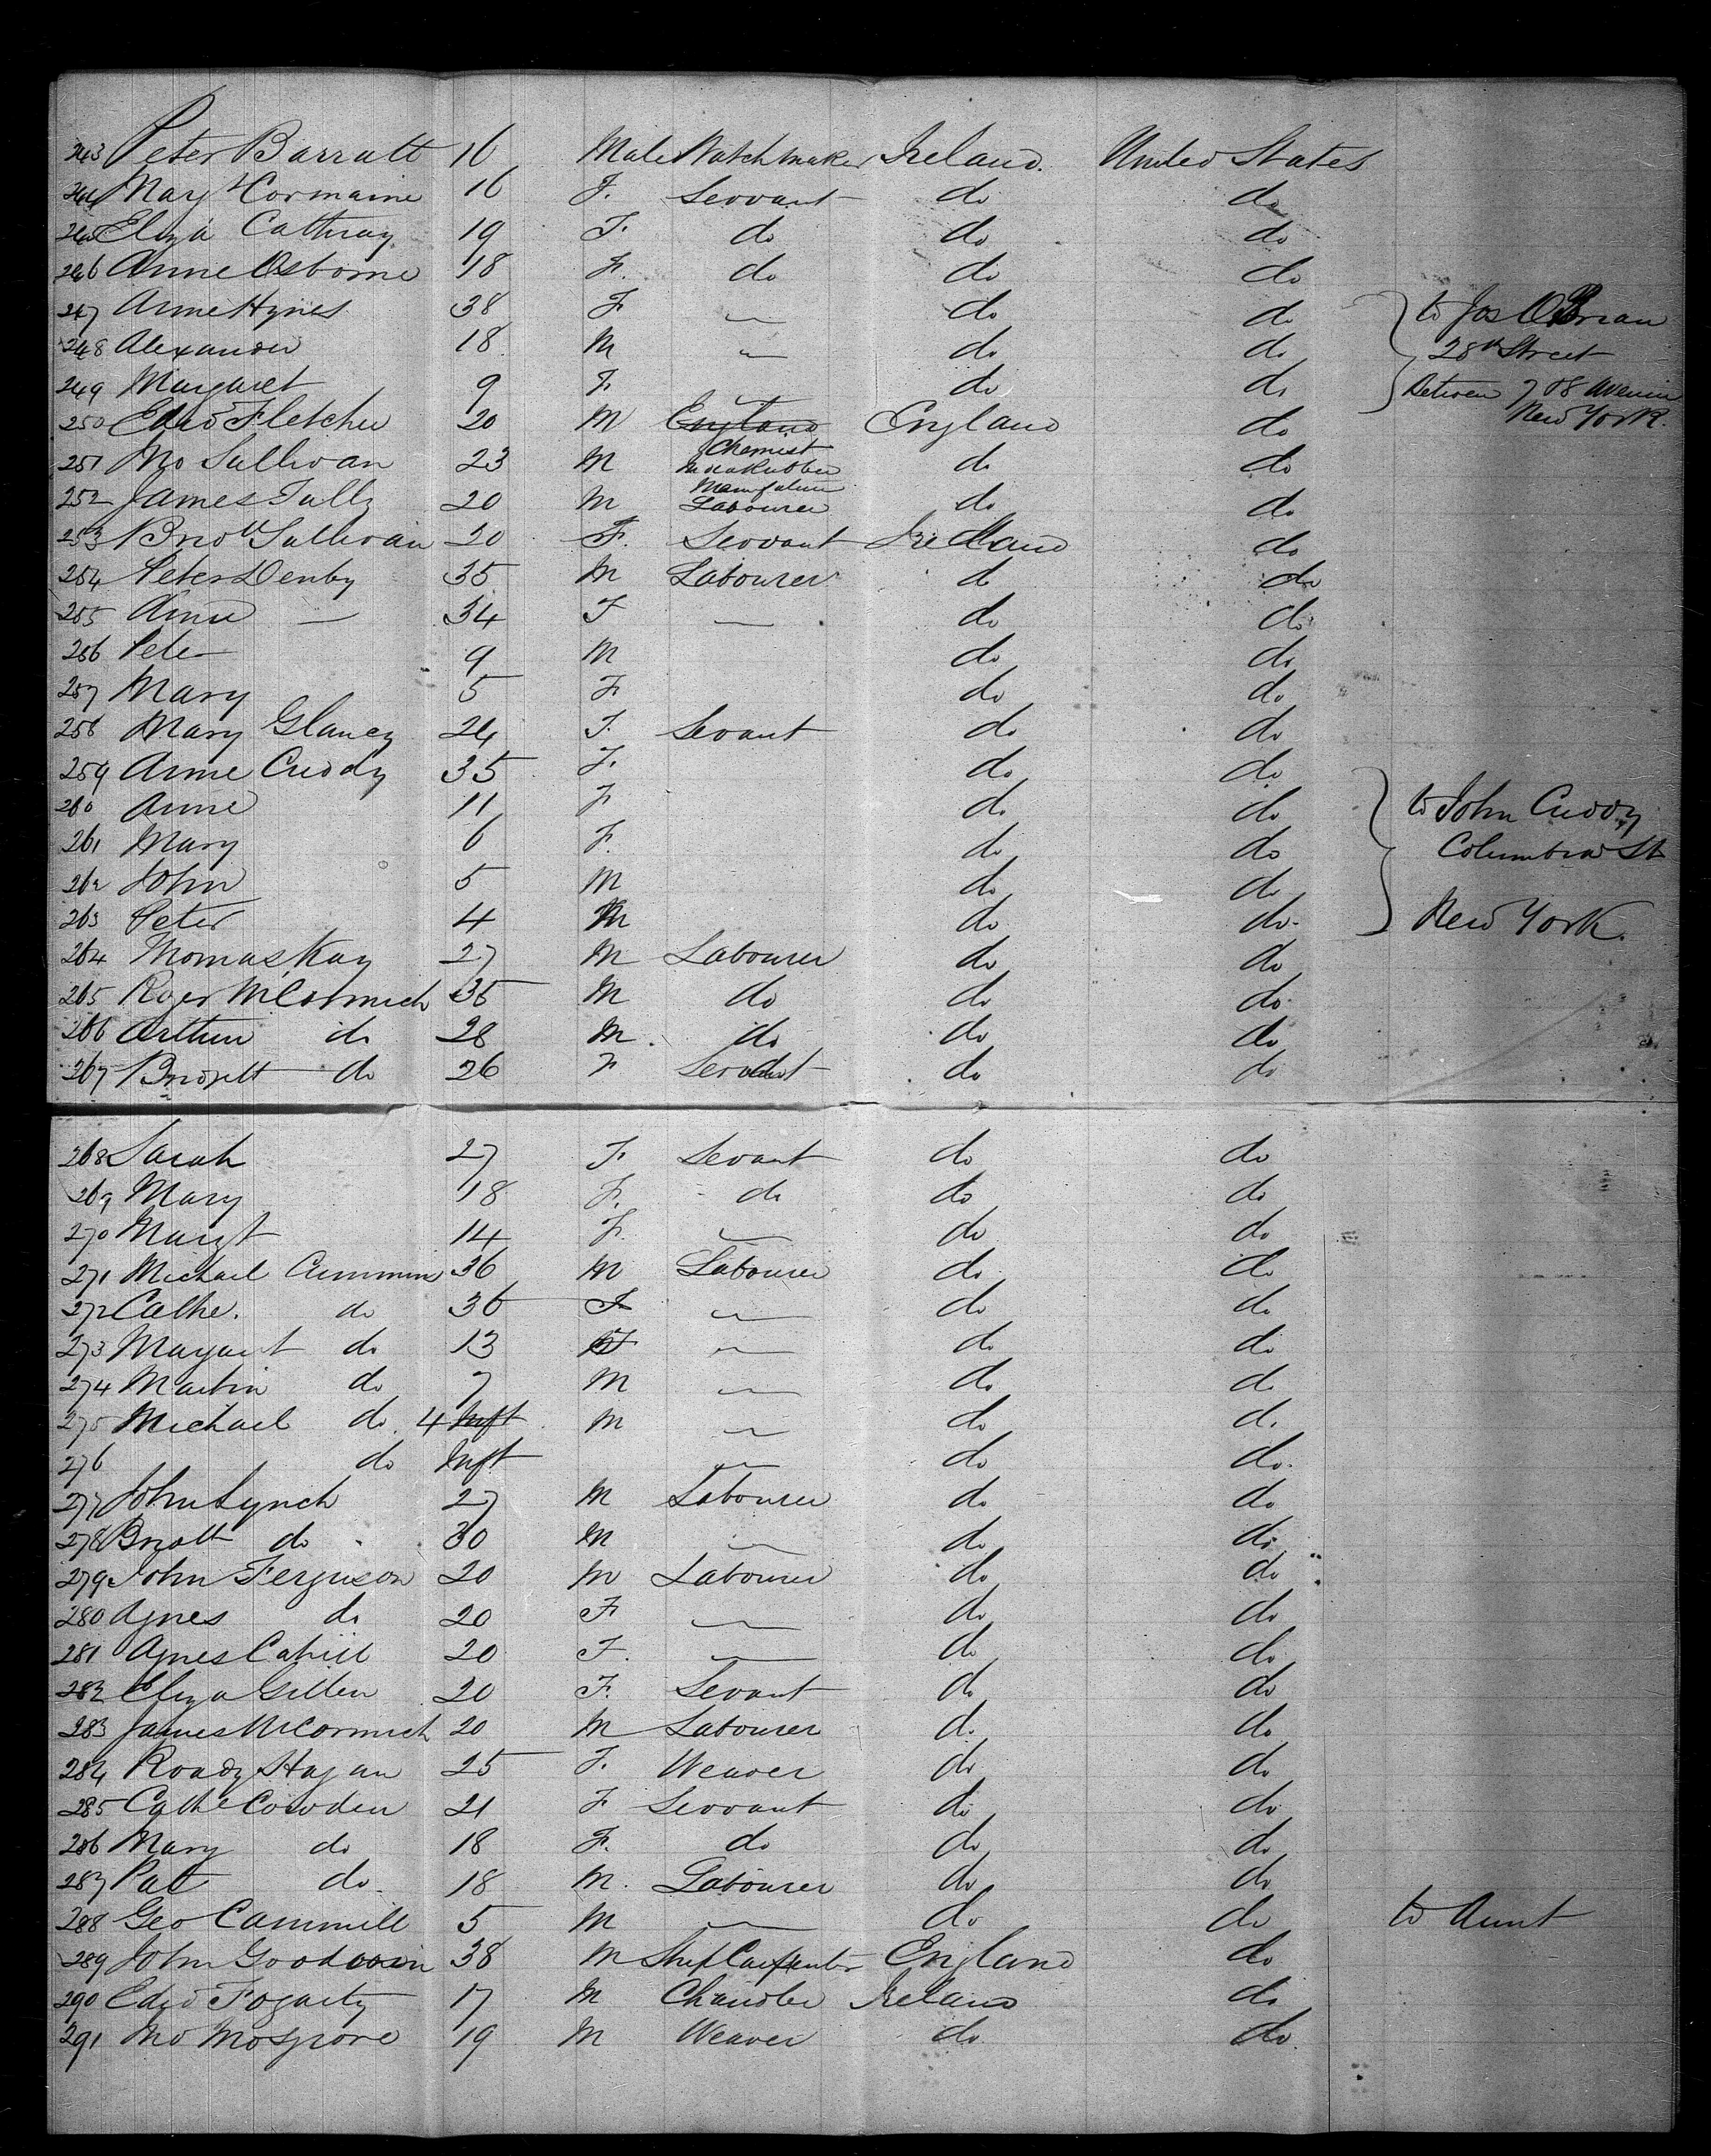 243 Peter Barratt 16 Male Watchmaker Ireland. United States
244 Mary Cormaine 16 F. Servant do do
245 Eliza Cathray 19 F. do do do
246 Anne Osborne 18 F. do do do
247 Anne Hynes 38 F — do do to Jos OBrian
248 Alexander 18 M — do do 28th Street
249 Margaret 9 F. — do do Between 7 & 8 Avenue
250 Edwd Fletcher 20 M England England do New York.
Chemist
251 Jno Sullivan 23 M India Rubber do do
Manufature
252 James Tully 20 M Labourer do do
253 Bridt Sullivan 20 F. Servant Ireland do
254 Peter Denby 35 M Labourer do do
255 Anne — 34 F — do do
256 Peter 9 M do do
257 Mary 5 F do do
258 Mary Glancy 24 F. Sevant do do
259 Anne Cuddy 35 F. do do
260 Anne 11 F do do to John Cuddy
261 Mary 6 F. do do Columbia St
262 John 5 M do do
263 Peter 4 M do do New York.
264 Thomas Kay 27 M Labourer do do
265 Roger McCormick 35 M do do do
266 Arthur do 28 M. do do do
267 Bridgett do 26 F Servant do do
268 Sarah 27 F Sevant do do
269 Mary 18 F. do do do
270 Margt 14 F. — do do
271 Michael Cummins 36 M Labourer do do
272 Cathe. do 36 F — do do
273 Margaret do 13 F — do do
274 Martin do 7 M — do do
275 Michael do. 4 Inft M — do do
276 do Inft — do do
277 John Lynch 27 M Labourer do do
278 do 30 M — do do
279 John Ferguson 20 M Labourer do do
280 Agnes do 20 F — do do
281 Agnes Cahill 20 F. — do do
282 Eliza Gillen 20 F. Sevant do do
283 James McCormick 20 M Labourer do do
284 Roady Hagan 25 F. Weaver do do
285 Cathe Cowden 21 F Servant do do
286 Mary do 18 F. do do do
287 Pat do 18 M. Labourer do do
288 Geo Cammill 5 M — do do to Aunt
289 John Goodwin 38 M Ship Carpenter England do
290 Edwd Fogarty 17 M Chandler Ireland do
291 Jno Mosgrove 19 M Weaver do do